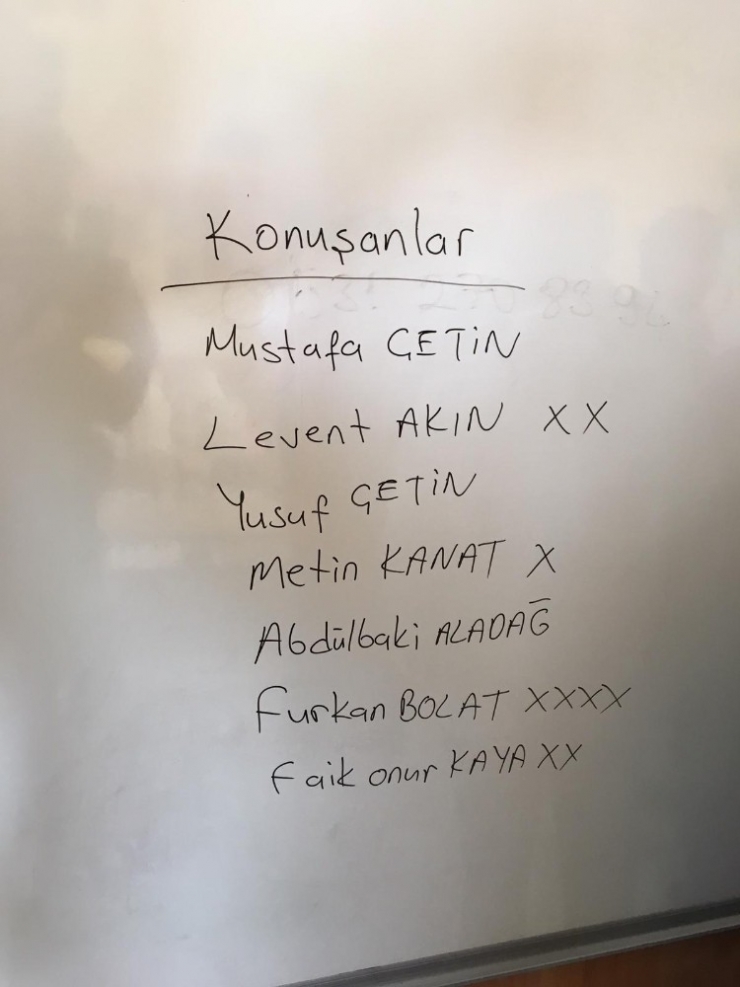 Konuşanlar
Mustafa ÇETİN
Levent AKIN XX
Yusuf ÇETİN
Metin KANAT X
Abdülbaki ALADAĞ
Furkan BOLAT XXXX
Faik onur KAYA XX